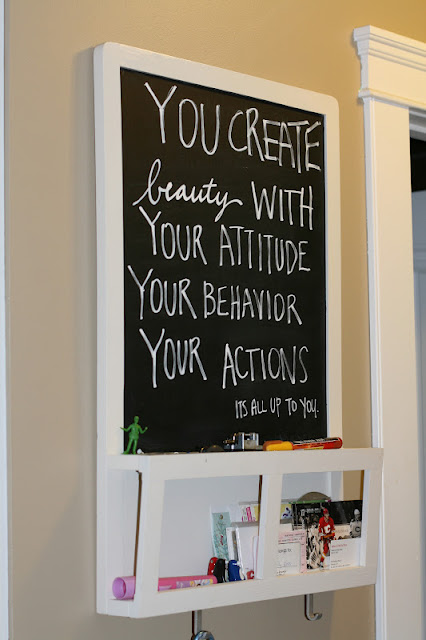 YOU CREATE
beauty WITH
YOUR ATTITUDE
YOUR BEHAVIOR
YOUR ACTIONS
ITS ALL UP TO YOU.